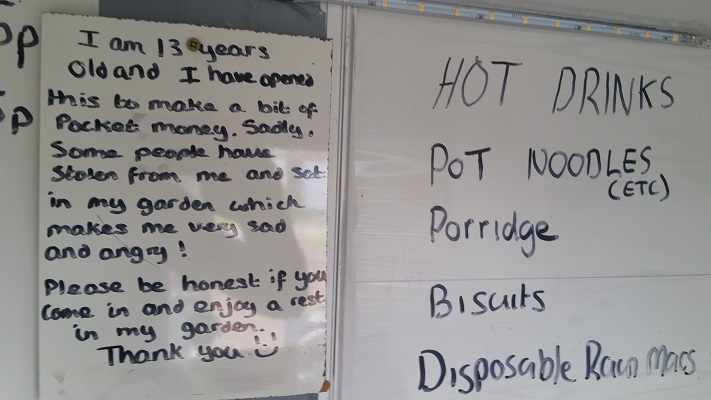 I am 13 years
Old and I have opened
this to make a bit of
Pocket money. Sadly,
Some people have
Stolen from me and sat
in my garden which
makes me very sad
and angry!
Please be honest if you
come in and enjoy a rest
in my garden.
Thank you
HOT DRINKS
POT NOODLES
(ETC)
Porridge
Biscuits
Disposable Rain Macs